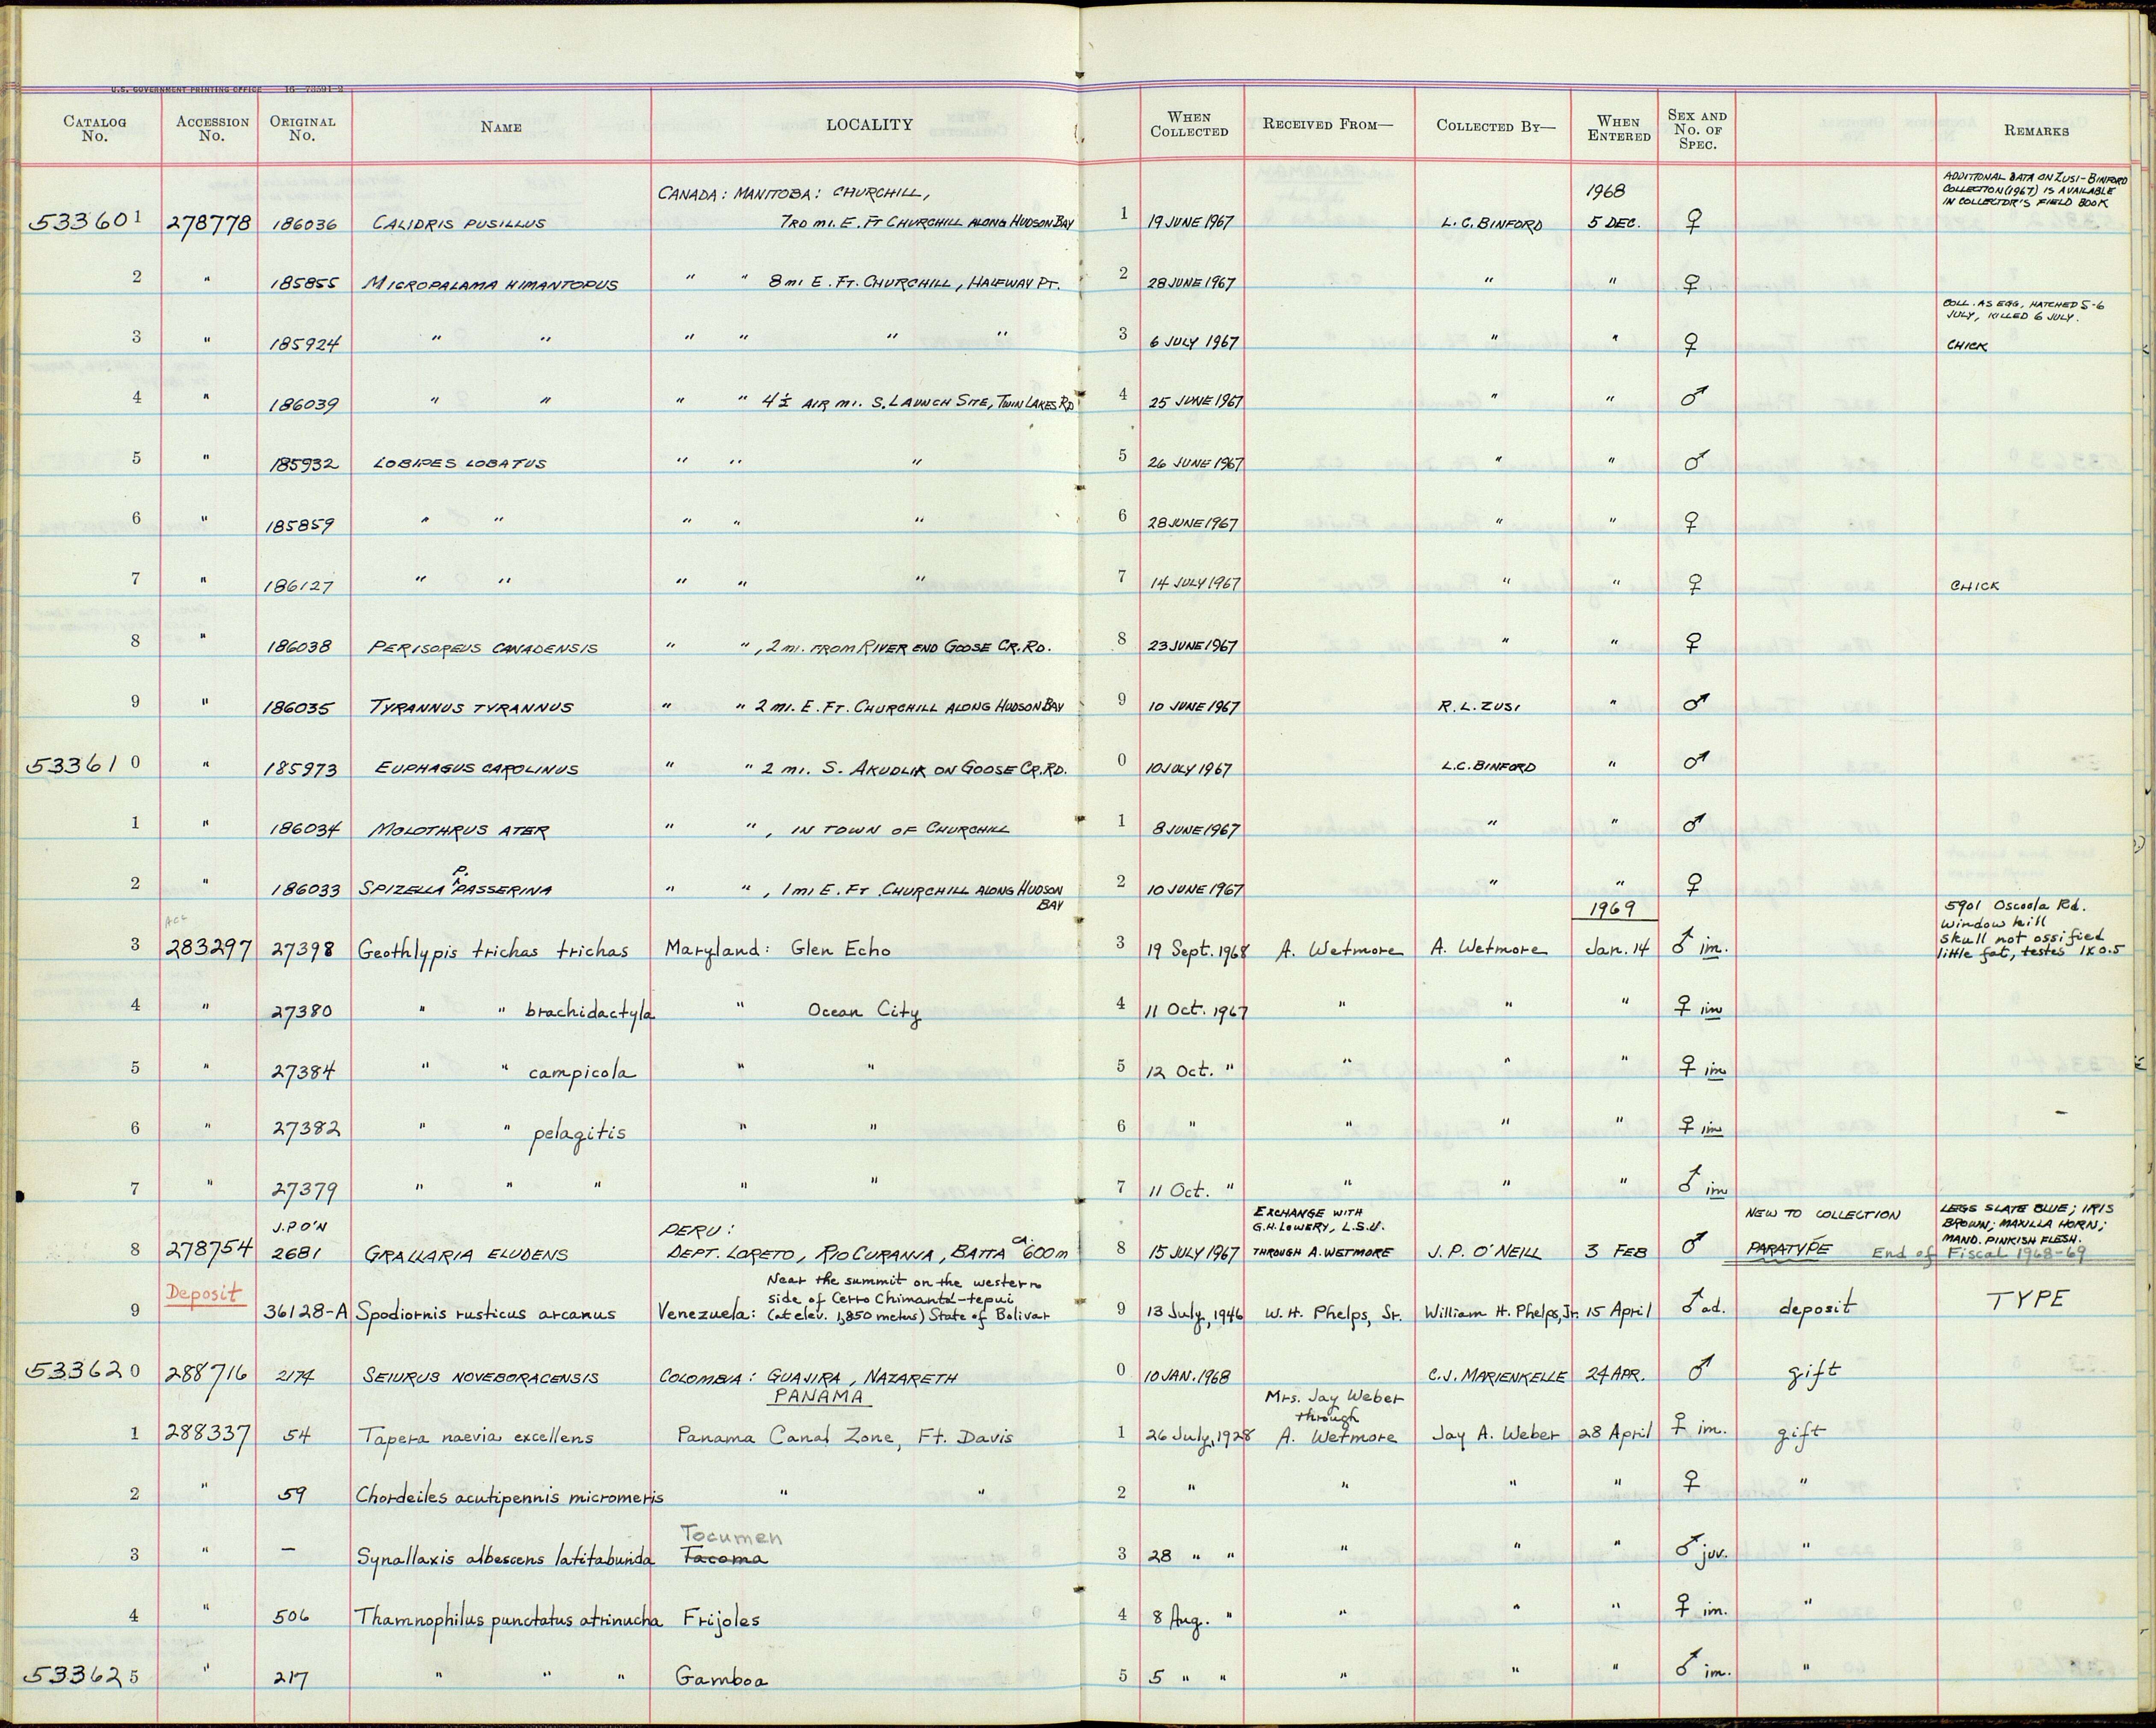 U.S. GOVERNMENT PRINTING OFFICE 16—73591-2
CATALOG No. ACCESSION No. ORIGINAL No. NAME LOCALITY WHEN COLLECTED RECEIVED FROM— COLLECTED BY— WHEN ENTERED SEX AND No. OF SPEC. REMARKS
CANADA: MANITOBA: CHURCHILL, 1968 ADDITIONAL DATA ON ZUSI-BINFORD COLLECTION (1967) IS AVAILABLE IN COLLECTOR'S FIELD BOOK
533601 278778 186036 CALIDRIS PUSILLUS 7 RD MI. E. FT CHURCHILL ALONG HUDSON BAY 1 19 JUNE 1967 L.C. BINFORD 5 DEC. ♀
2 " 185855 MICROPALAMA HIMANTOPUS " " 8 MI E. FT. CHURCHILL, HALFWAY PT. 2 28 JUNE 1967 " " ♀
COLL. AS EGG, HATCHED 5-6 JULY, KILLED 6 JULY.
3 " 185924 " " " " " " 3 6 JULY 1967 " " ♀ CHICK
4 " 186039 " " " " 4½ AIR MI. S. LAUNCH SITE, TWIN LAKES RD 4 25 JUNE 1967 " " ♂
5 " 185932 LOBIPES LOBATUS " " " 5 26 JUNE 1967 " " ♂
6 " 185859 " " " " " 6 28 JUNE 1967 " " ♀
7 " 186127 " " " " " 7 14 JULY 1967 " " ♀ CHICK
8 " 186038 PERISOREUS CANADENSIS " " , 2 MI. FROM RIVER END GOOSE CR. RD. 8 23 JUNE 1967 " " ♀
9 " 186035 TYRANNUS TYRANNUS " " 2 MI. E. FT. CHURCHILL ALONG HUDSON BAY 9 10 JUNE 1967 R.L. ZUSI " ♂
533610 " 185973 EUPHAGUS CAROLINUS " " 2 MI. S. AKUDLIK ON GOOSE CR. RD. 0 10 JULY 1967 L.C. BINFORD " ♂
1 " 186034 MOLOTHRUS ATER " " , IN TOWN OF CHURCHILL 1 8 JUNE 1967 " " ♂
P.
2 " 186033 SPIZELLA ^PASSERINA " " , 1 MI E. FT. CHURCHILL ALONG HUDSON BAY 2 10 JUNE 1967 " " ♀
ACC 1969 5901 Oscoola Rd. Window kill skull not ossified little fat, testes 1x0.5
3 283297 27398 Geothlypis trichas trichas Maryland: Glen Echo 3 19 Sept. 1968 A. Wetmore A. Wetmore Jan. 14 ♂ im.
4 " 27380 " " brachidactyla " Ocean City 4 11 Oct. 1967 " " " ♀ im
5 " 27384 " " campicola " " 5 12 Oct. " " " " ♀ im
6 " 27382 " " pelagitis " " 6 " " " " ♀ im
7 " 27379 " " " " " 7 11 Oct. " " " " ♂ im
J.P O'N PERU: EXCHANGE WITH G.H. LOWERY, L.S.U. NEW TO COLLECTION LEGS SLATE BLUE; IRIS BROWN; MAXILLA HORN; MAND. PINKISH FLESH.
8 278754 2681 GRALLARIA ELUDENS DEPT. LORETO, RIO CURANJA, BALTA ca. 600 m 8 15 JULY 1967 THROUGH A. WETMORE J. P. O'NEILL 3 FEB ♂ PARATYPE End of Fiscal 1968-69
Deposit Near the summit on the western side of Cerro Chimantá-tepui
9 36128-A Spodiornis rusticus arcanus Venezuela: (at elev. 1,850 meters) State of Bolivar 9 13 July, 1946 W. H. Phelps, Sr. William H. Phelps, Jr. 15 April ♂ ad. deposit TYPE
533620 288716 2174 SEIURUS NOVEBORACENSIS COLOMBIA: GUAJIRA, NAZARETH 0 10 JAN. 1968 C.J. MARIENKELLE 24 APR. ♂ gift
PANAMA Mrs. Jay Weber through
1 288337 54 Tapera naevia excellens Panama Canal Zone, Ft. Davis 1 26 July, 1928 A. Wetmore Jay A. Weber 28 April ♀ im. gift
2 " 59 Chordeiles acutipennis micromeris " " 2 " " " " ♀ "
Tocumen
3 " — Synallaxis albescens latitabunda Tacoma 3 28 " " " " " ♂ juv. "
4 " 506 Thamnophilus punctatus atrinucha Frijoles 4 8 Aug. " " " " ♀ im. "
533625 " 217 " " " Gamboa 5 5 " " " " " ♂ im. "